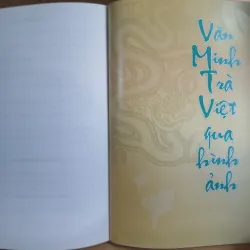 Văn
Minh
Trà
Việt
qua
hình
ảnh